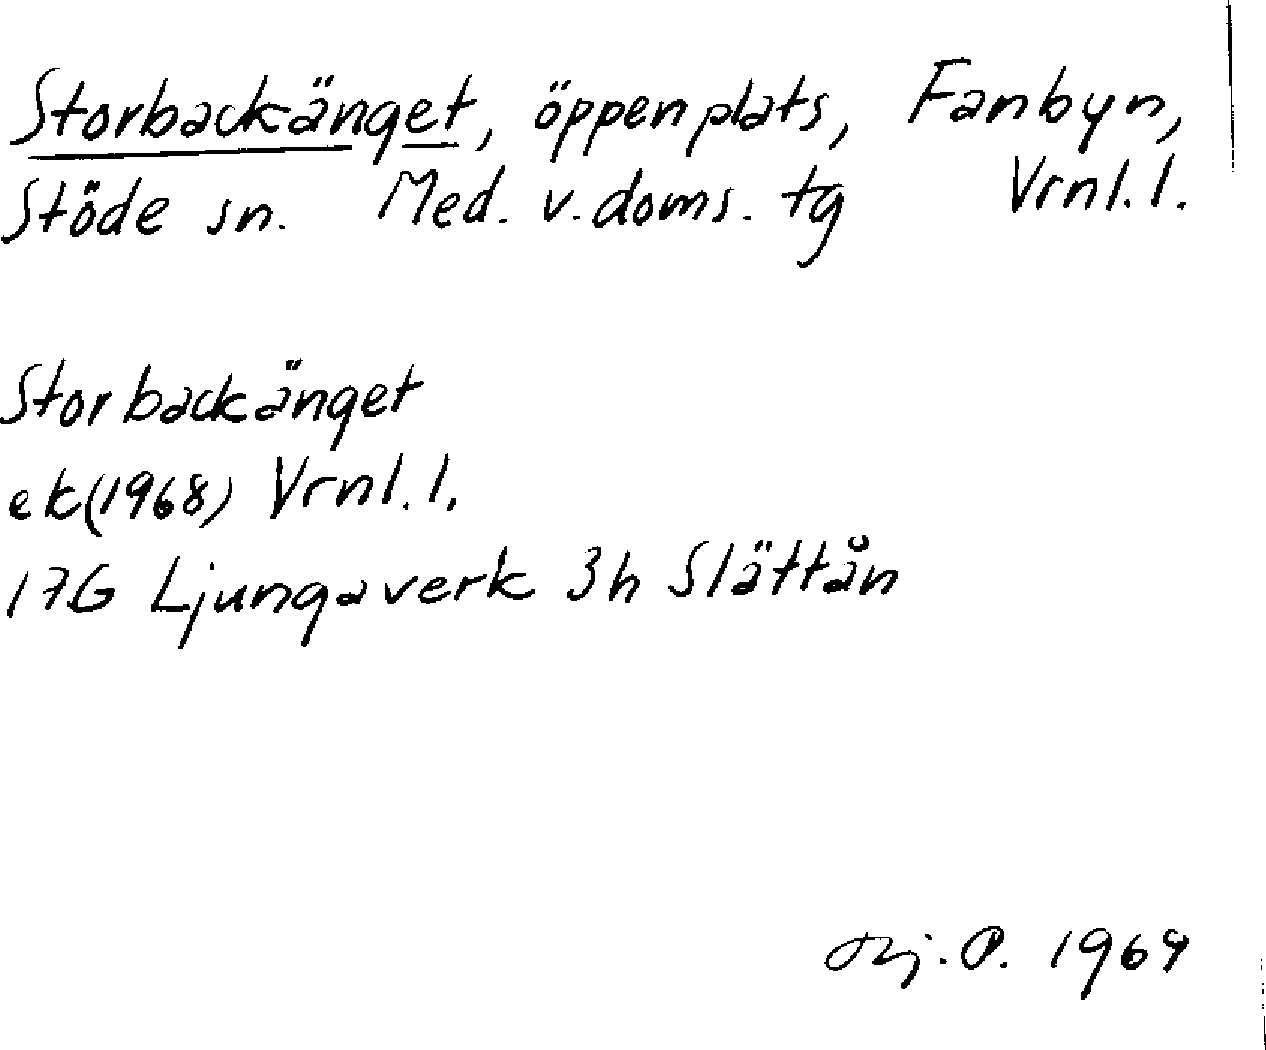 Storbackänget, öppen plats, Fanbyn,
Stöde sn. Med. v. doms. tg Vrnl. l.
Storbackänget
ek (1968) Vrnl. l.
17G Ljungaverk 3h Slättån
P. 1969